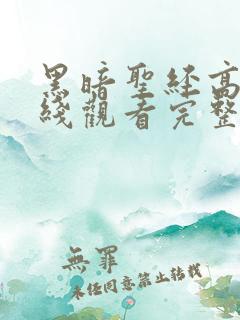 黑暗聖經高
綫觀看完整
無罪
未經同意禁止轉載